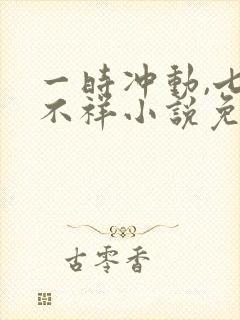 一時冲動,七
不祥小說免
古零香